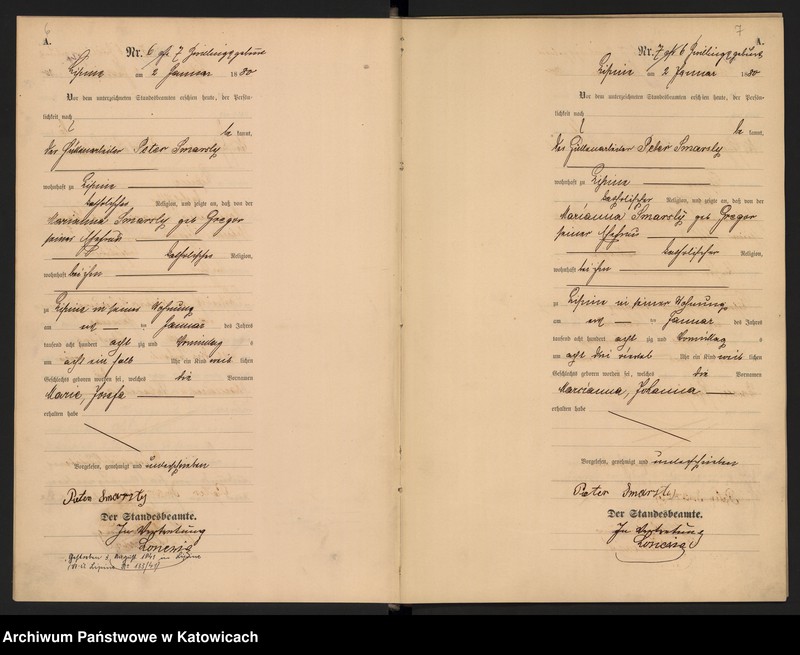 6
A.
Nr. 6 gft 7 Zwillingsgeburt
Lipine am 2 Januar 1880
Vor dem unterzeichneten Standesbeamten erschien heute, der Persön-
lichkeit nach
be kannt,
der Hüttenarbeiter Peter Smarsly
wohnhaft zu Lipine
katholischer Religion, und zeigte an, daß von der
Marianna Smarsly geb Gregor
seiner Ehefrau
katholischer Religion,
wohnhaft bei ihm
zu Lipine in seiner Wohnung
am ten Januar des Jahres
tausend acht hundert acht zig und Vormittag s
um acht ein halb Uhr ein Kind weib lichen
Geschlechts geboren worden sei, welches die Vornamen
Marie, Josefa
erhalten habe
Vorgelesen, genehmigt und unterschrieben
Peter Smarsly
Der Standesbeamte.
In Vertretung
Gestorben 1941 in Lipine
Lipine Nr 133/41
7
A.
Nr. 7 gft 6 Zwillingsgeburt
Lipine am 2 Januar 1880
Vor dem unterzeichneten Standesbeamten erschien heute, der Persön-
lichkeit nach
be kannt,
der Hüttenarbeiter Peter Smarsly
wohnhaft zu Lipine
katholischer Religion, und zeigte an, daß von der
Marianna Smarsly geb Gregor
seiner Ehefrau
katholischer Religion,
wohnhaft bei ihm
zu Lipine in seiner Wohnung
am ten Januar des Jahres
tausend acht hundert acht zig und Vormittag s
um acht drei viertel Uhr ein Kind weib lichen
Geschlechts geboren worden sei, welches die Vornamen
Marianna, Johanna
erhalten habe
Vorgelesen, genehmigt und unterschrieben
Peter Smarsly
Der Standesbeamte.
In Vertretung
Archiwum Państwowe w Katowicach